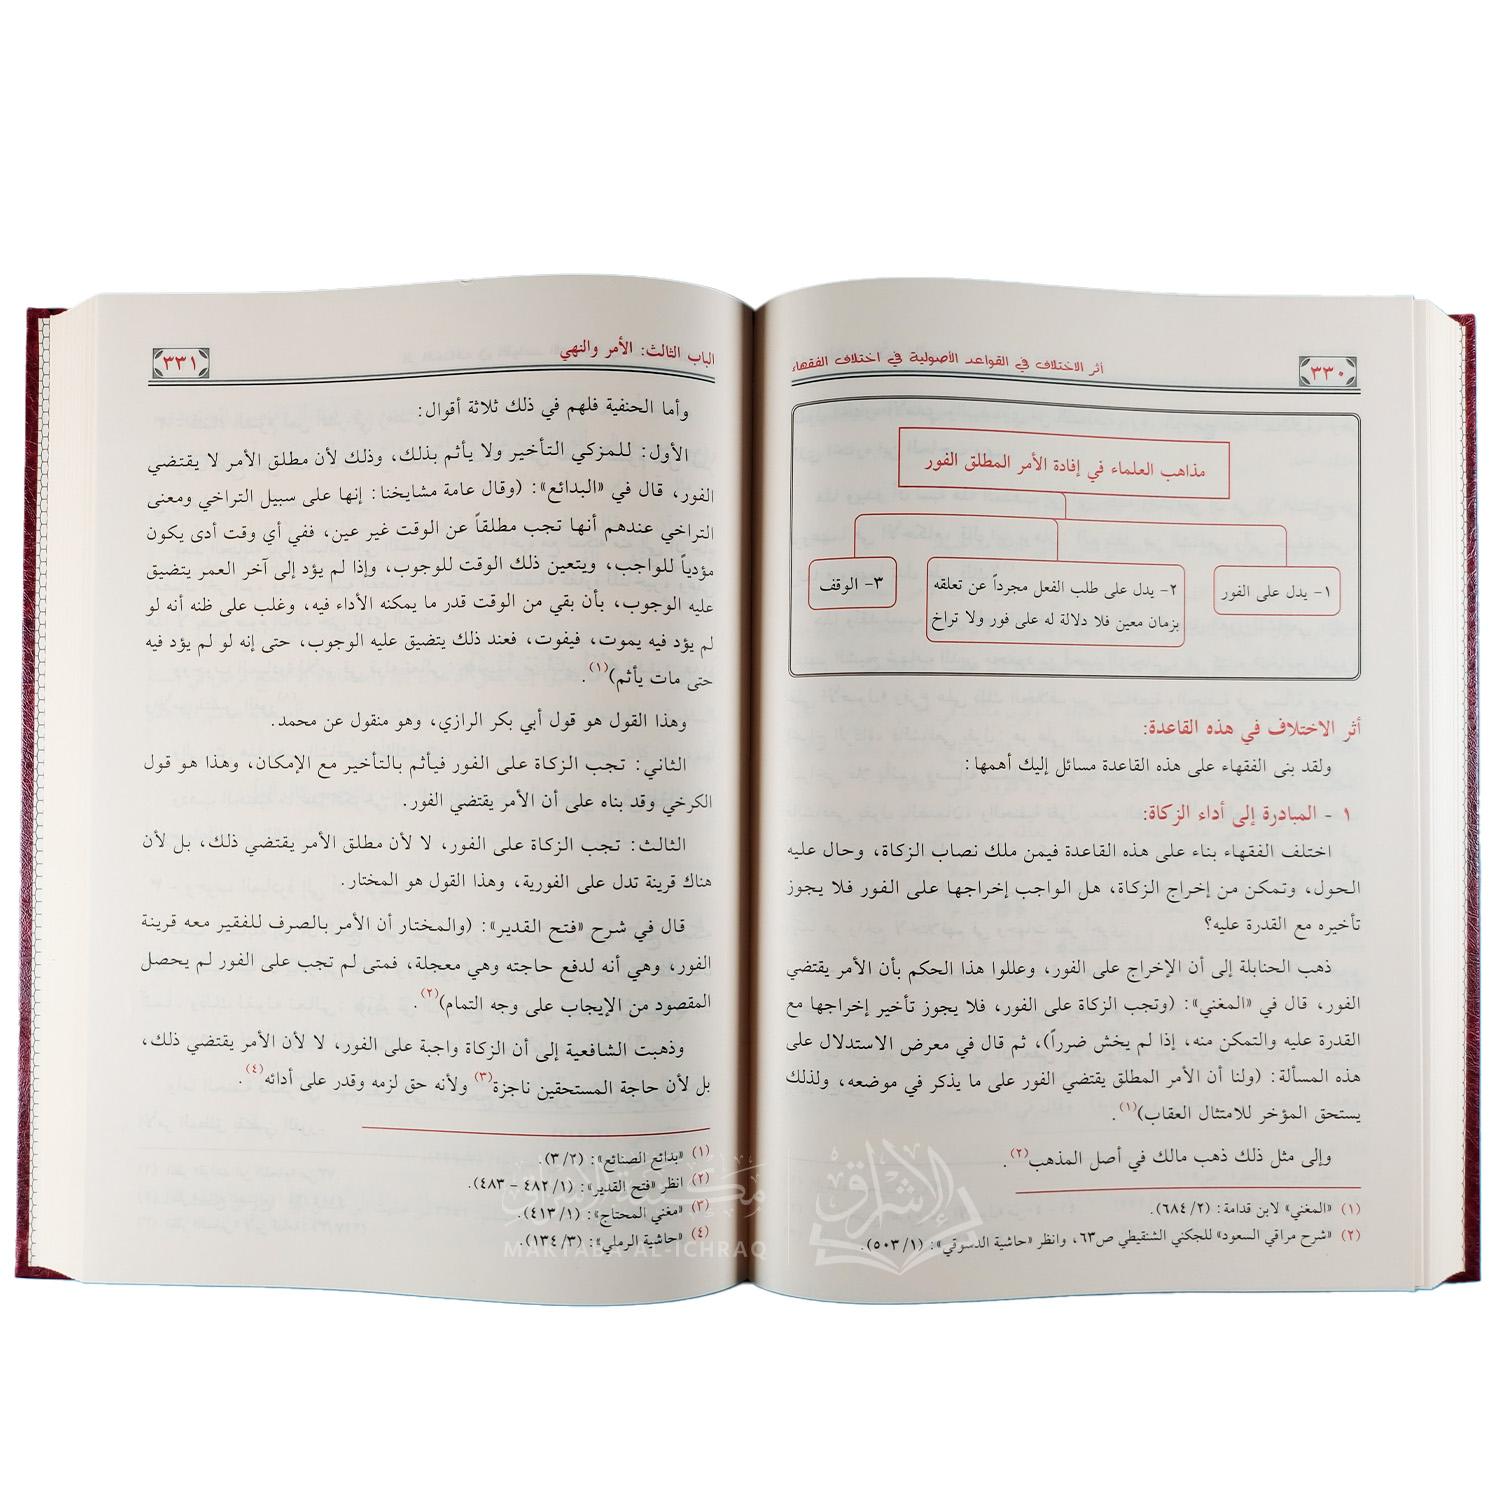 ٣٣٠
أثر الاختلاف في القواعد الأصولية في اختلاف الفقهاء
مذاهب العلماء في إفادة الأمر المطلق الفور
١- يدل على الفور
٢- يدل على طلب الفعل مجرداً عن تعلقه
بزمان معين فلا دلالة له على فور ولا تراخ
٣- الوقف
أثر الاختلاف في هذه القاعدة:
ولقد بنى الفقهاء على هذه القاعدة مسائل إليك أهمها:
١ - المبادرة إلى أداء الزكاة:
اختلف الفقهاء بناء على هذه القاعدة فيمن ملك نصاب الزكاة، وحال عليه
الحول، وتمكن من إخراج الزكاة، هل الواجب إخراجها على الفور فلا يجوز
تأخيره مع القدرة عليه؟
ذهب الحنابلة إلى أن الإخراج على الفور، وعللوا هذا الحكم بأن الأمر يقتضي
الفور، قال في «المغني»: (وتجب الزكاة على الفور، فلا يجوز تأخير إخراجها مع
القدرة عليه والتمكن منه، إذا لم يخش ضرراً)، ثم قال في معرض الاستدلال على
هذه المسألة: (ولنا أن الأمر المطلق يقتضي الفور على ما يذكر في موضعه، ولذلك
يستحق المؤخر للامتثال العقاب)(١).
وإلى مثل ذلك ذهب مالك في أصل المذهب(٢).
(١) «المغني» لابن قدامة: (٢/ ٦٨٤).
(٢) «شرح مراقي السعود» للجكني الشنقيطي ص٦٣، وانظر «حاشية الدسوقي»: (١/ ٥٠٣).
الباب الثالث: الأمر والنهي
٣٣١
وأما الحنفية فلهم في ذلك ثلاثة أقوال:
الأول: للمزكي التأخير ولا يأثم بذلك، وذلك لأن مطلق الأمر لا يقتضي
الفور، قال في «البدائع»: (وقال عامة مشايخنا: إنها على سبيل التراخي ومعنى
التراخي عندهم أنها تجب مطلقاً عن الوقت غير عين، ففي أي وقت أدى يكون
مؤدياً للواجب، ويتعين ذلك الوقت للوجوب، وإذا لم يؤد إلى آخر العمر يتضيق
عليه الوجوب، بأن بقي من الوقت قدر ما يمكنه الأداء فيه، وغلب على ظنه أنه لو
لم يؤد فيه يموت، فيفوت، فعند ذلك يتضيق عليه الوجوب، حتى إنه لو لم يؤد فيه
حتى مات يأثم)(١).
وهذا القول هو قول أبي بكر الرازي، وهو منقول عن محمد.
الثاني: تجب الزكاة على الفور فيأثم بالتأخير مع الإمكان، وهذا هو قول
الكرخي وقد بناه على أن الأمر يقتضي الفور.
الثالث: تجب الزكاة على الفور، لا لأن مطلق الأمر يقتضي ذلك، بل لأن
هناك قرينة تدل على الفورية، وهذا القول هو المختار.
قال في شرح «فتح القدير»: (والمختار أن الأمر بالصرف للفقير معه قرينة
الفور، وهي أنه لدفع حاجته وهي معجلة، فمتى لم تجب على الفور لم يحصل
المقصود من الإيجاب على وجه التمام)(٢).
وذهبت الشافعية إلى أن الزكاة واجبة على الفور، لا لأن الأمر يقتضي ذلك،
بل لأن حاجة المستحقين ناجزة(٣) ولأنه حق لزمه وقدر على أدائه(٤).
(١) «بدائع الصنائع»: (٢/ ٣).
(٢) انظر «فتح القدير»: (١/ ٤٨٢ - ٤٨٣).
(٣) «مغني المحتاج»: (١/ ٤١٣).
(٤) «حاشية الرملي»: (٣/ ١٣٤).
مكتبة الإشراق
MAKTABA AL-ICHRAQ
الإشراق